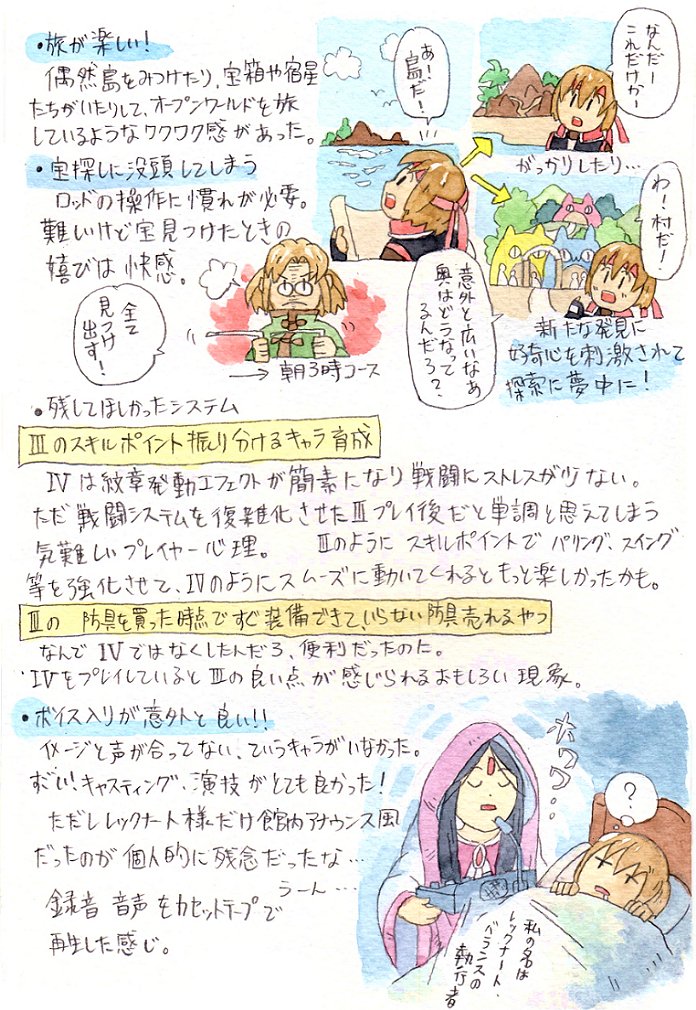 ・旅が楽しい!
偶然島をみつけたり、宝箱や宿星
たちがいたりして、オープンワールドを旅
しているようなワクワク感があった。
・宝探しに没頭してしまう
ロッドの操作に慣れが必要。
難しいけど宝見つけたときの
嬉びは快感。
全て
見つけ
出す!
→朝3時コース
あ!
島だ!
なんだー
これだけかー
がっかりしたり…
わ!村だ!
意外と広いなあ
奥はどうなって
るんだろ?
新たな発見に
好奇心を刺激されて
探索に夢中に!
・残してほしかったシステム
Ⅲのスキルポイント振り分けるキャラ育成
Ⅳは紋章発動エフェクトが簡素になり戦闘にストレスが少ない。
ただ戦闘システムを復雑化させたⅢプレイ後だと単調と思えてしまう
気難しいプレイヤー心理。 Ⅲのようにスキルポイントでパリング、スイング
等を強化させて、Ⅳのようにスムーズに動いてくれるともっと楽しかったかも。
Ⅲの 防具を買った時点ですぐ装備できていらない防具売れるやつ
なんでⅣではなくしたんだろ、便利だったのに。
ⅣをプレイしているとほどⅢの良い点が感じられるおもしろい現象。
・ボイス入りが意外と良い!!
イメージと声が合ってない、ていうキャラがいなかった。
すごい!キャスティング、演技がとても良かった!
ただしレックナート様だけ館内アナウンス風
だったのが個人的に残念だったな…
うーん…
録音音声をカセットテープで
再生した感じ。
ホワワ…
?
私の名は
レックナート・
バランスの
執行者